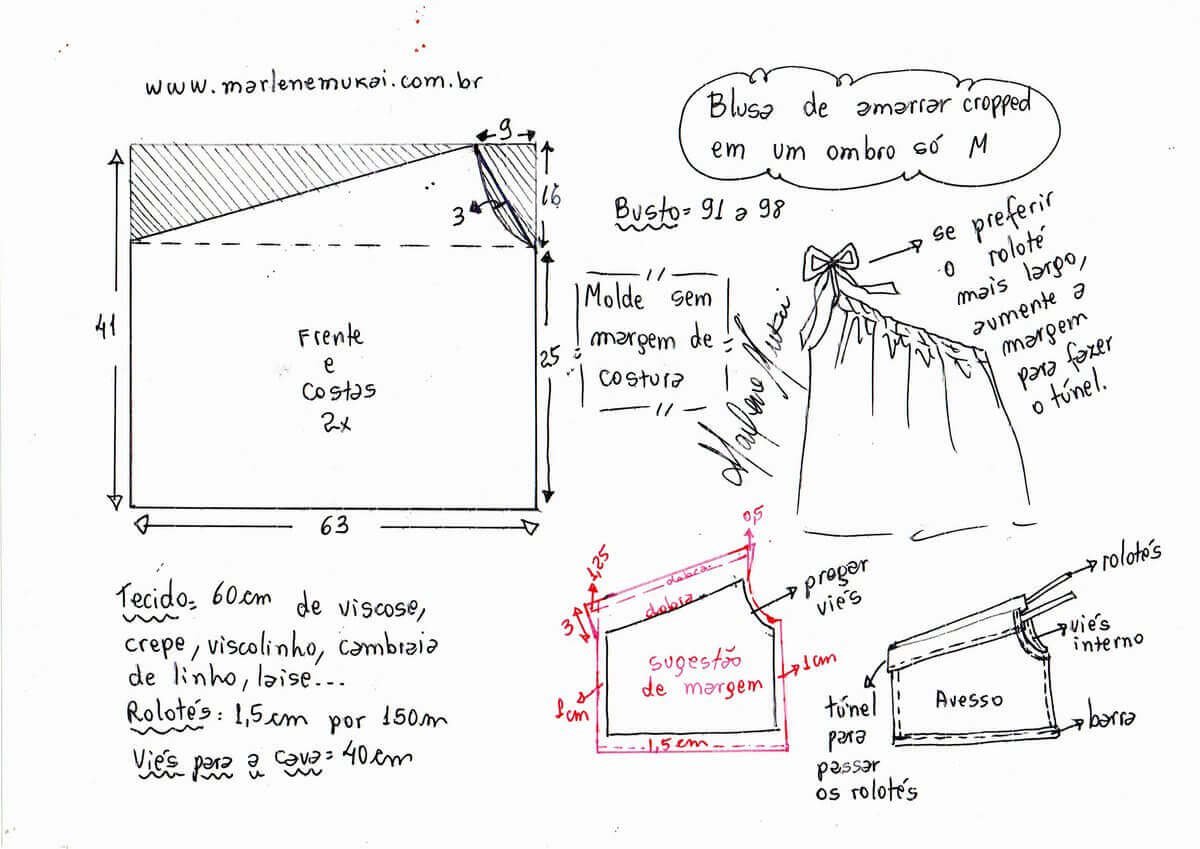 www.marlenemukai.com.br
Blusa de amarrar cropped
em um ombro só M
9
16
3
41
Frente
e
Costas
2x
25
63
Busto= 91 a 98
Molde sem
margem de
costura
Marlene Mukai
se preferir
o roloté
mais largo,
aumente a
margem
para fazer
o túnel.
Tecido= 60cm de viscose,
crepe, viscolinho, cambraia
de linho, laise...
Rolotés: 1,5cm por 150m
Viés para a cava= 40cm
0,5
1,25
3
dobra
dobra
pregar
viés
sugestão
de margem
1cm
1cm
1,5cm
rolotés
viés
interno
Avesso
barra
túnel
para
passar
os rolotés